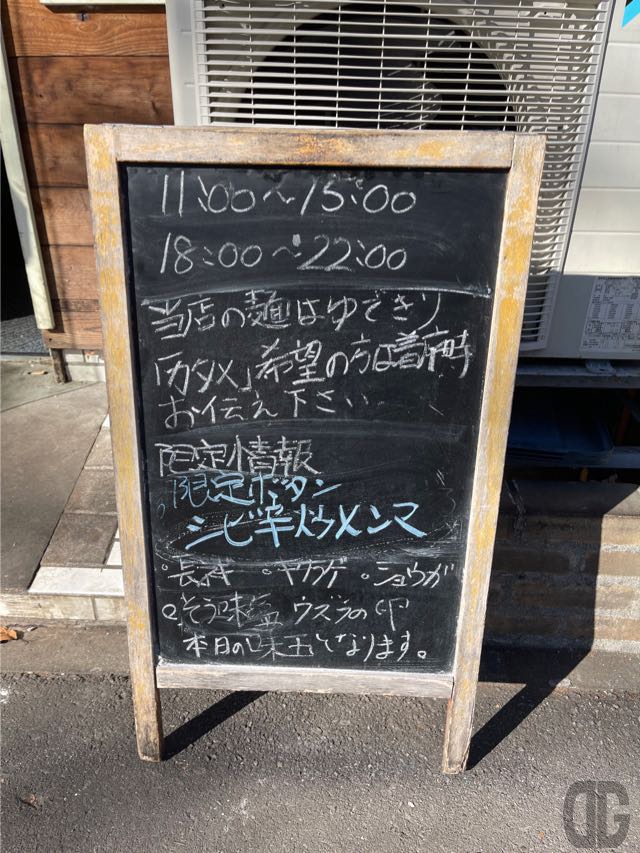 11:00~15:00
18:00~22:00
当店の麺はゆできり
「カタメ」希望の方は着席時
お伝え下さい
限定情報
。限定ボタン
シビ辛炒メンマ
。長ネギ 。ヤクミ 。ショウガ
ウズラの卵
本日の味玉となります。
DG